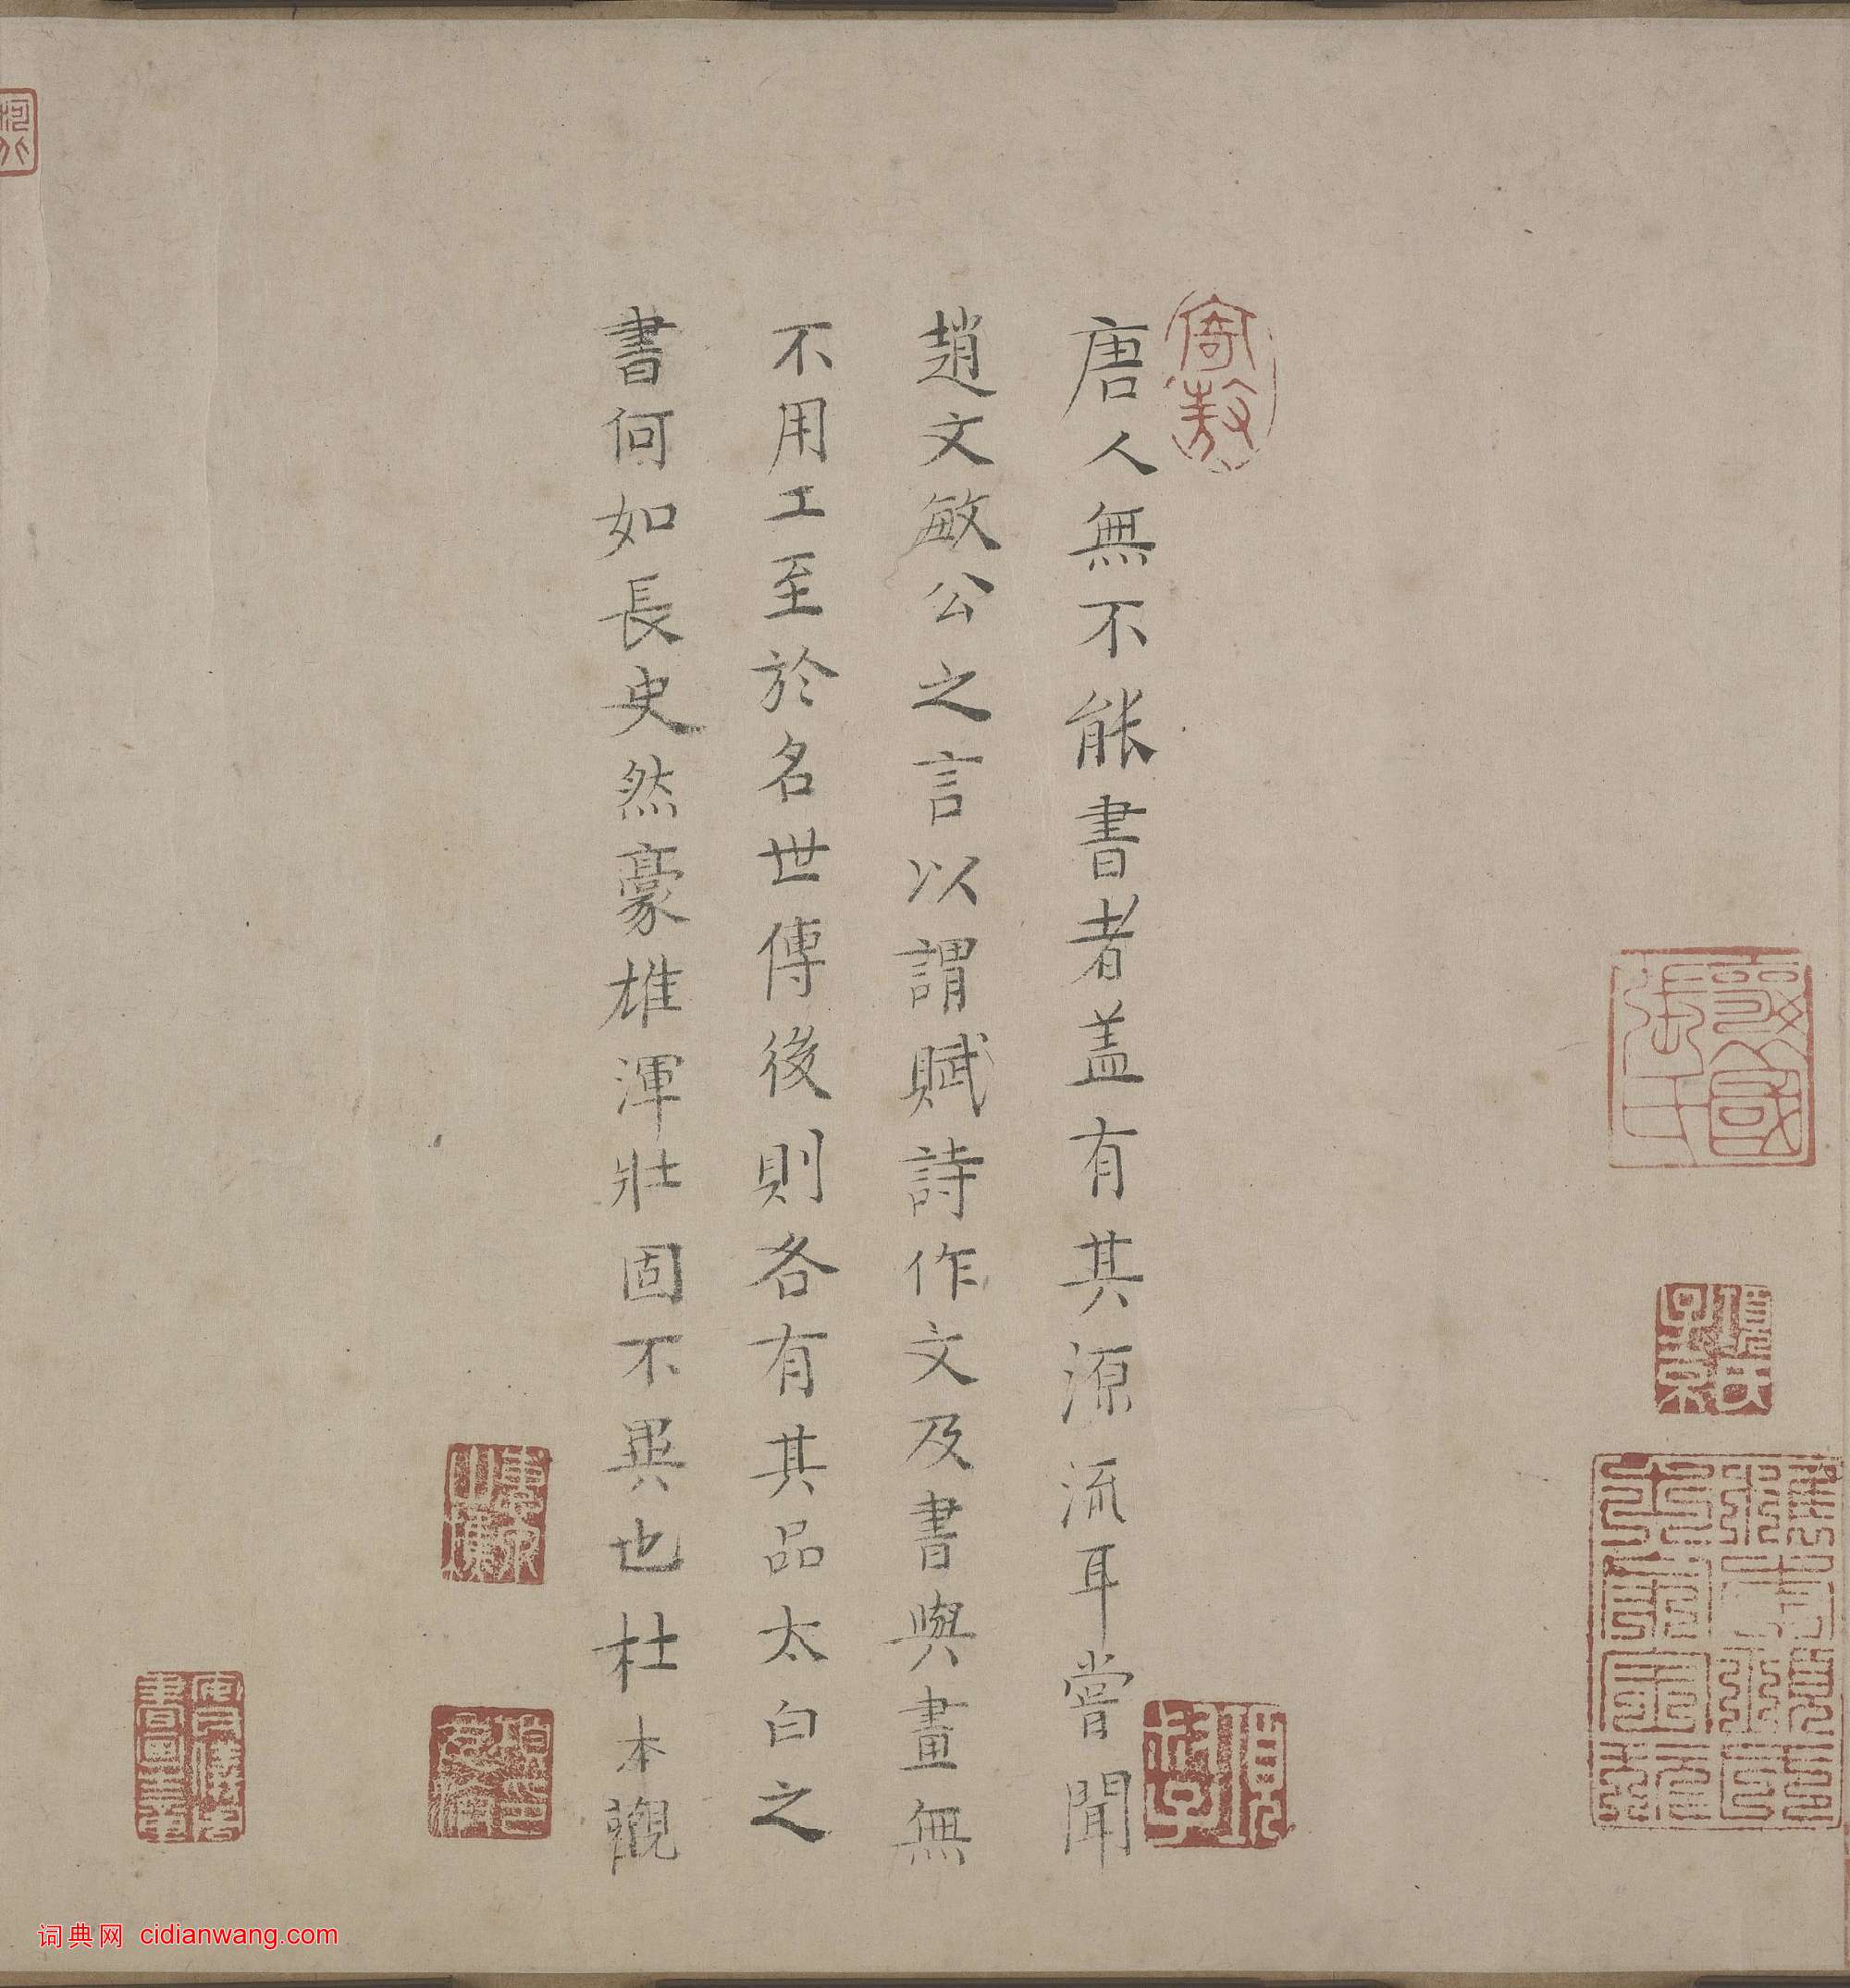 唐人無不能書者盖有其源流耳嘗聞
趙文敏公之言以謂賦詩作文及書與畫無
不用工至於名世傳後則各有其品太白之
書何如長史然豪雄渾壯固不異也杜本觀
寄敖
項氏子京
词典网 cidianwang.com